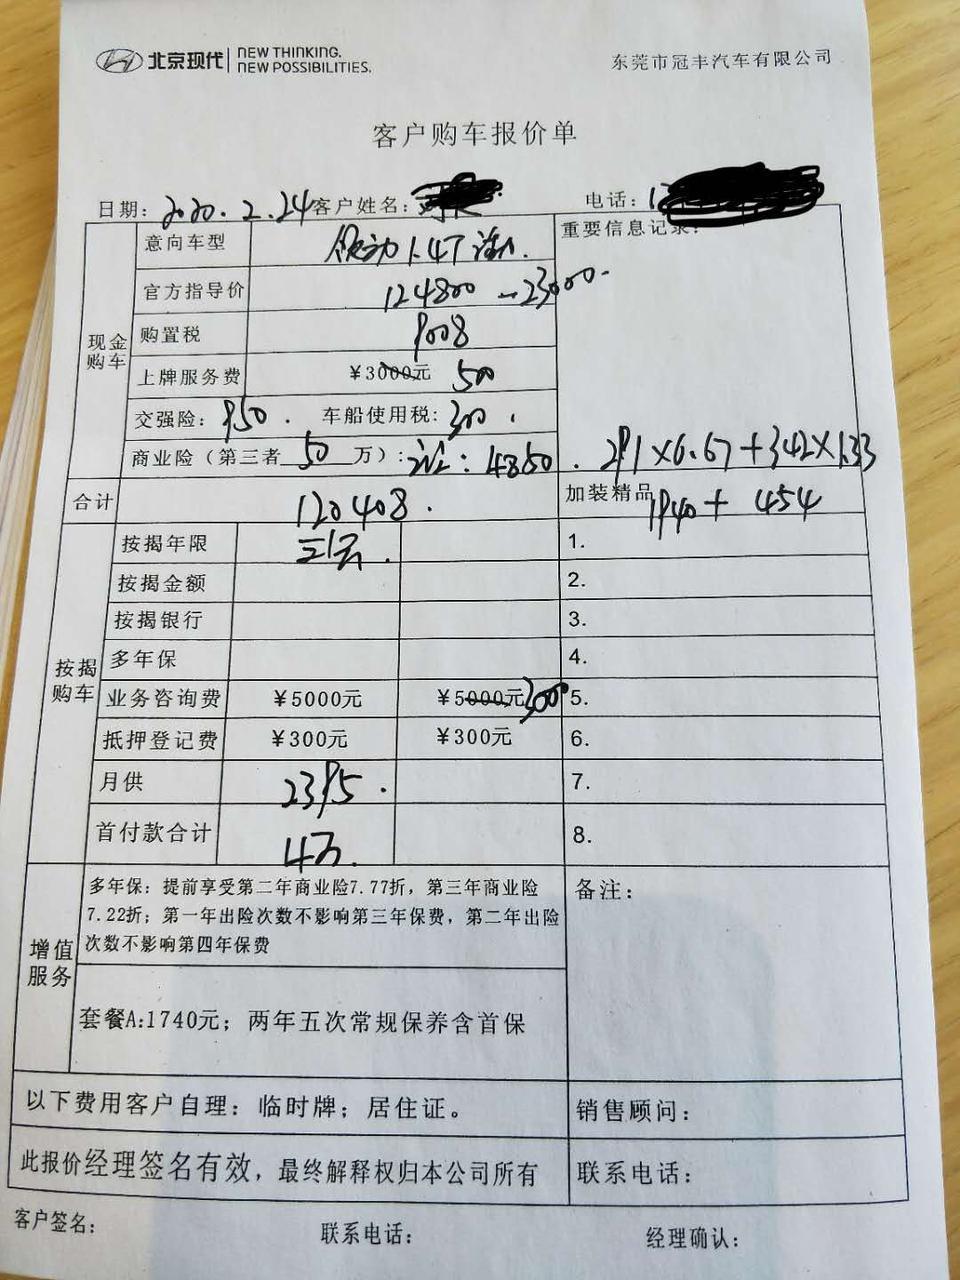 北京现代 NEW THINKING. NEW POSSIBILITIES. 东莞市冠丰汽车有限公司
客户购车报价单
日期: 2020.2.24 客户姓名: 电话: 1
现金购车
意向车型 领动 1.4T 重要信息记录:
官方指导价 124800 - 23000.
购置税 9008
上牌服务费 ¥3000元 500
交强险: 950. 车船使用税: 300.
商业险(第三者 50 万): 4850. 291×6.67+342×1.33
合计 120408. 加装精品 1940+454
按揭购车
按揭年限 1.
按揭金额 2.
按揭银行 3.
多年保 4.
业务咨询费 ¥5000元 ¥5000元 3000 5.
抵押登记费 ¥300元 ¥300元 6.
月供 2395. 7.
首付款合计 4万. 8.
增值服务
多年保: 提前享受第二年商业险7.77折, 第三年商业险 备注:
7.22折; 第一年出险次数不影响第三年保费, 第二年出险
次数不影响第四年保费
套餐A:1740元; 两年五次常规保养含首保
以下费用客户自理: 临时牌; 居住证。 销售顾问:
此报价经理签名有效, 最终解释权归本公司所有 联系电话:
客户签名: 联系电话: 经理确认: